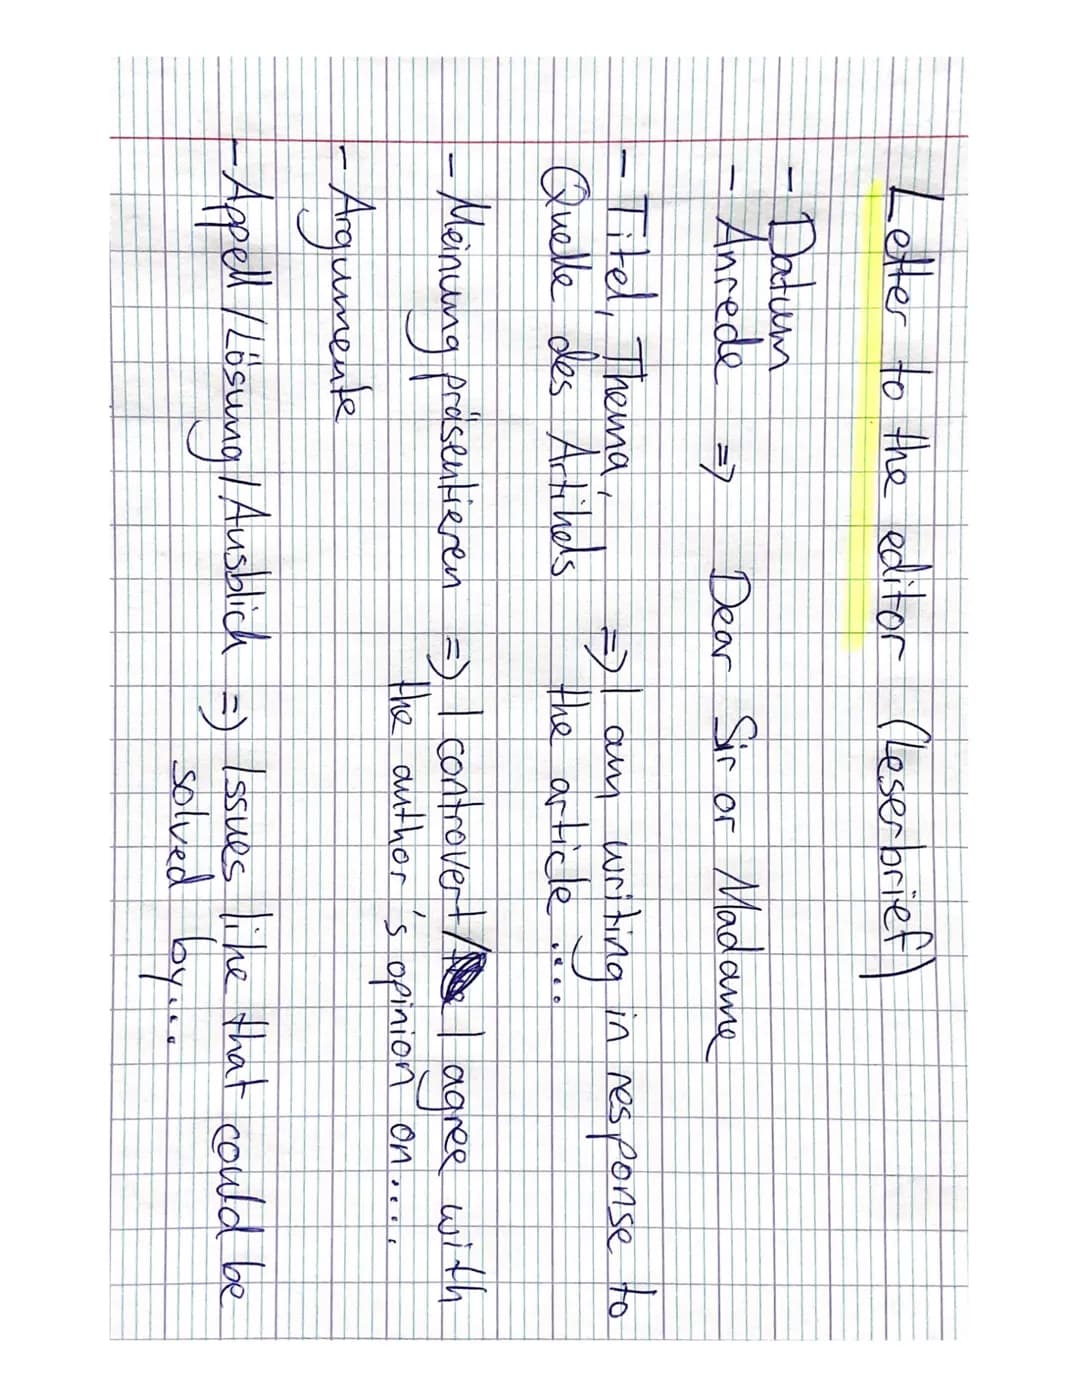 Letter to the editor (Leserbrief)
- Datum
- Anrede => Dear Sir or Madame,
- Titel, Thema, => I am writing in response to
Quelle des Artikels the article ....
- Meinung präsentieren => I controvert/ I agree with
the author's opinion on....
- Argumente
- Appell/Lösung/Ausblick => Issues like that could be
solved by...